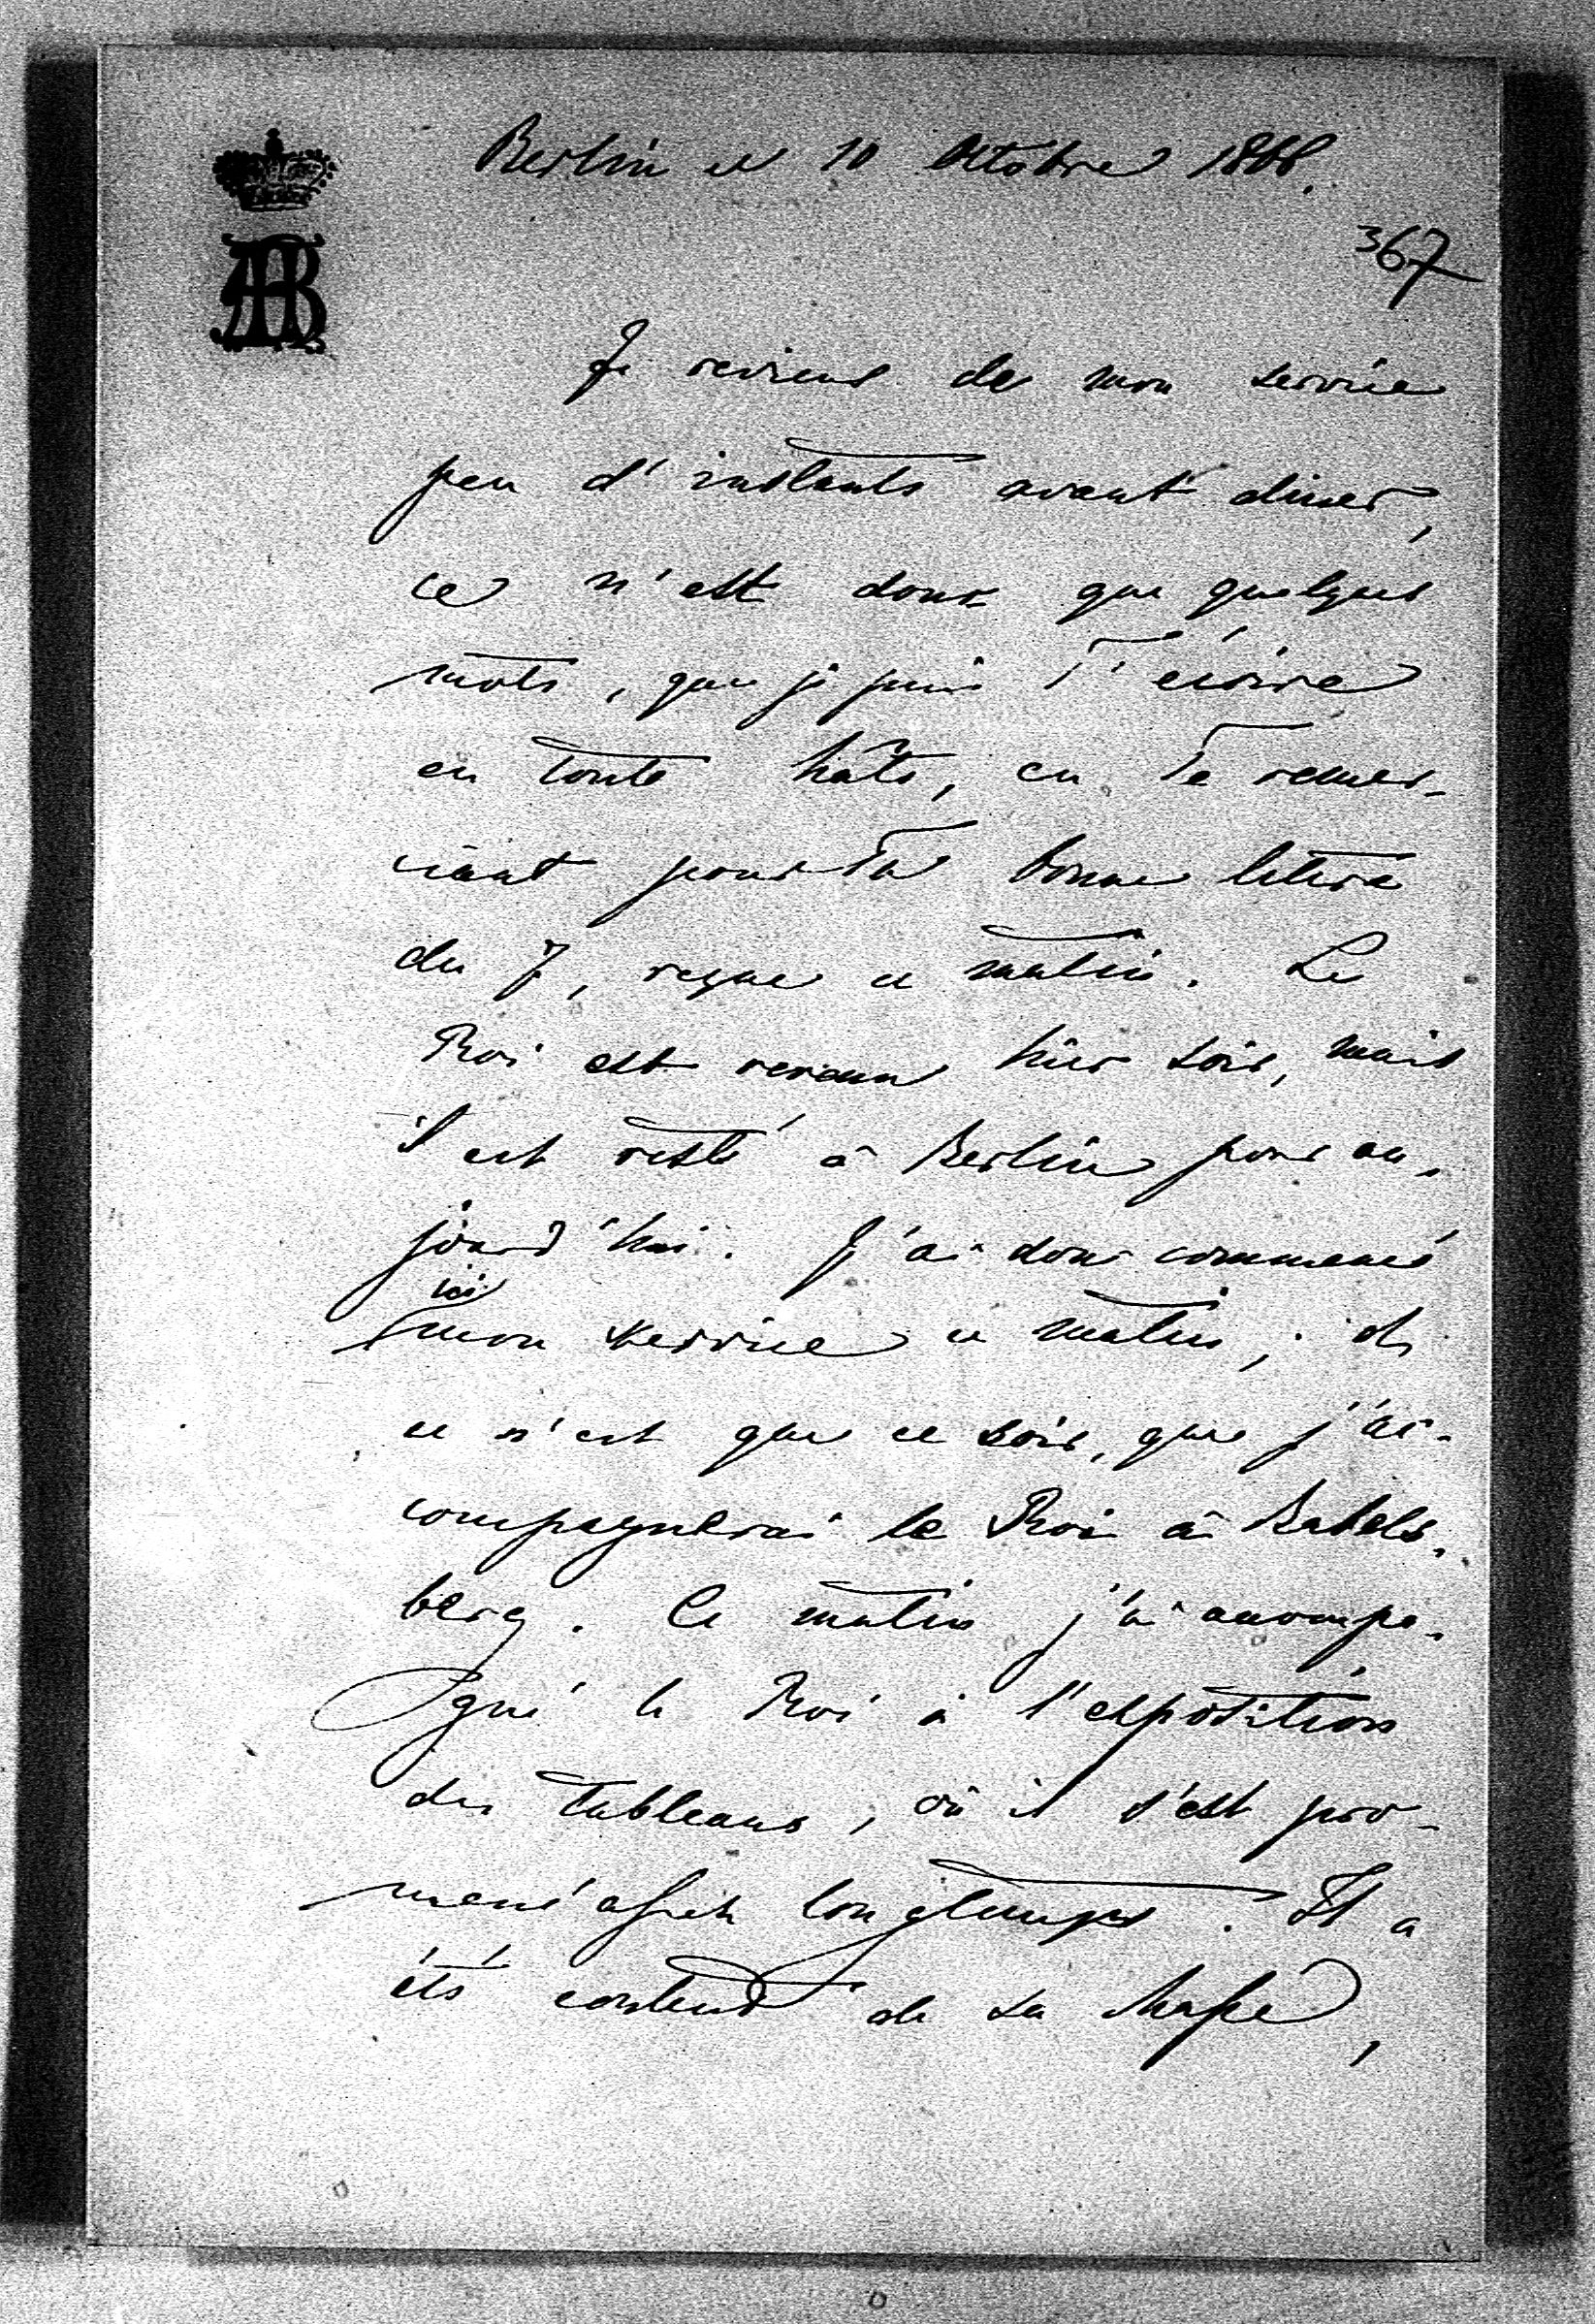 Berlin ce 10 Octobre 1868.
367
Je reviens de mon service
peu d'instants avant diner,
ce n'est donc que quelques
mots, que je puis T'écrire
en toute hâte, en Te remer-
ciant pour Ta bonne lettre
du 7, reçue ce matin. Le
Roi est revenu hier soir, mais
il est resté à Berlin pour au-
jourd'hui. J'ai donc commencé
ici
mon service ce matin, et
ce n'est que ce soir, que j'ac-
compagnerai le Roi à Babels-
berg. Ce matin j'ai accompa-
gné le Roi à l'exposition
des tableaux, où il s'est pro-
mené assez longtemps. Il a
été content de sa